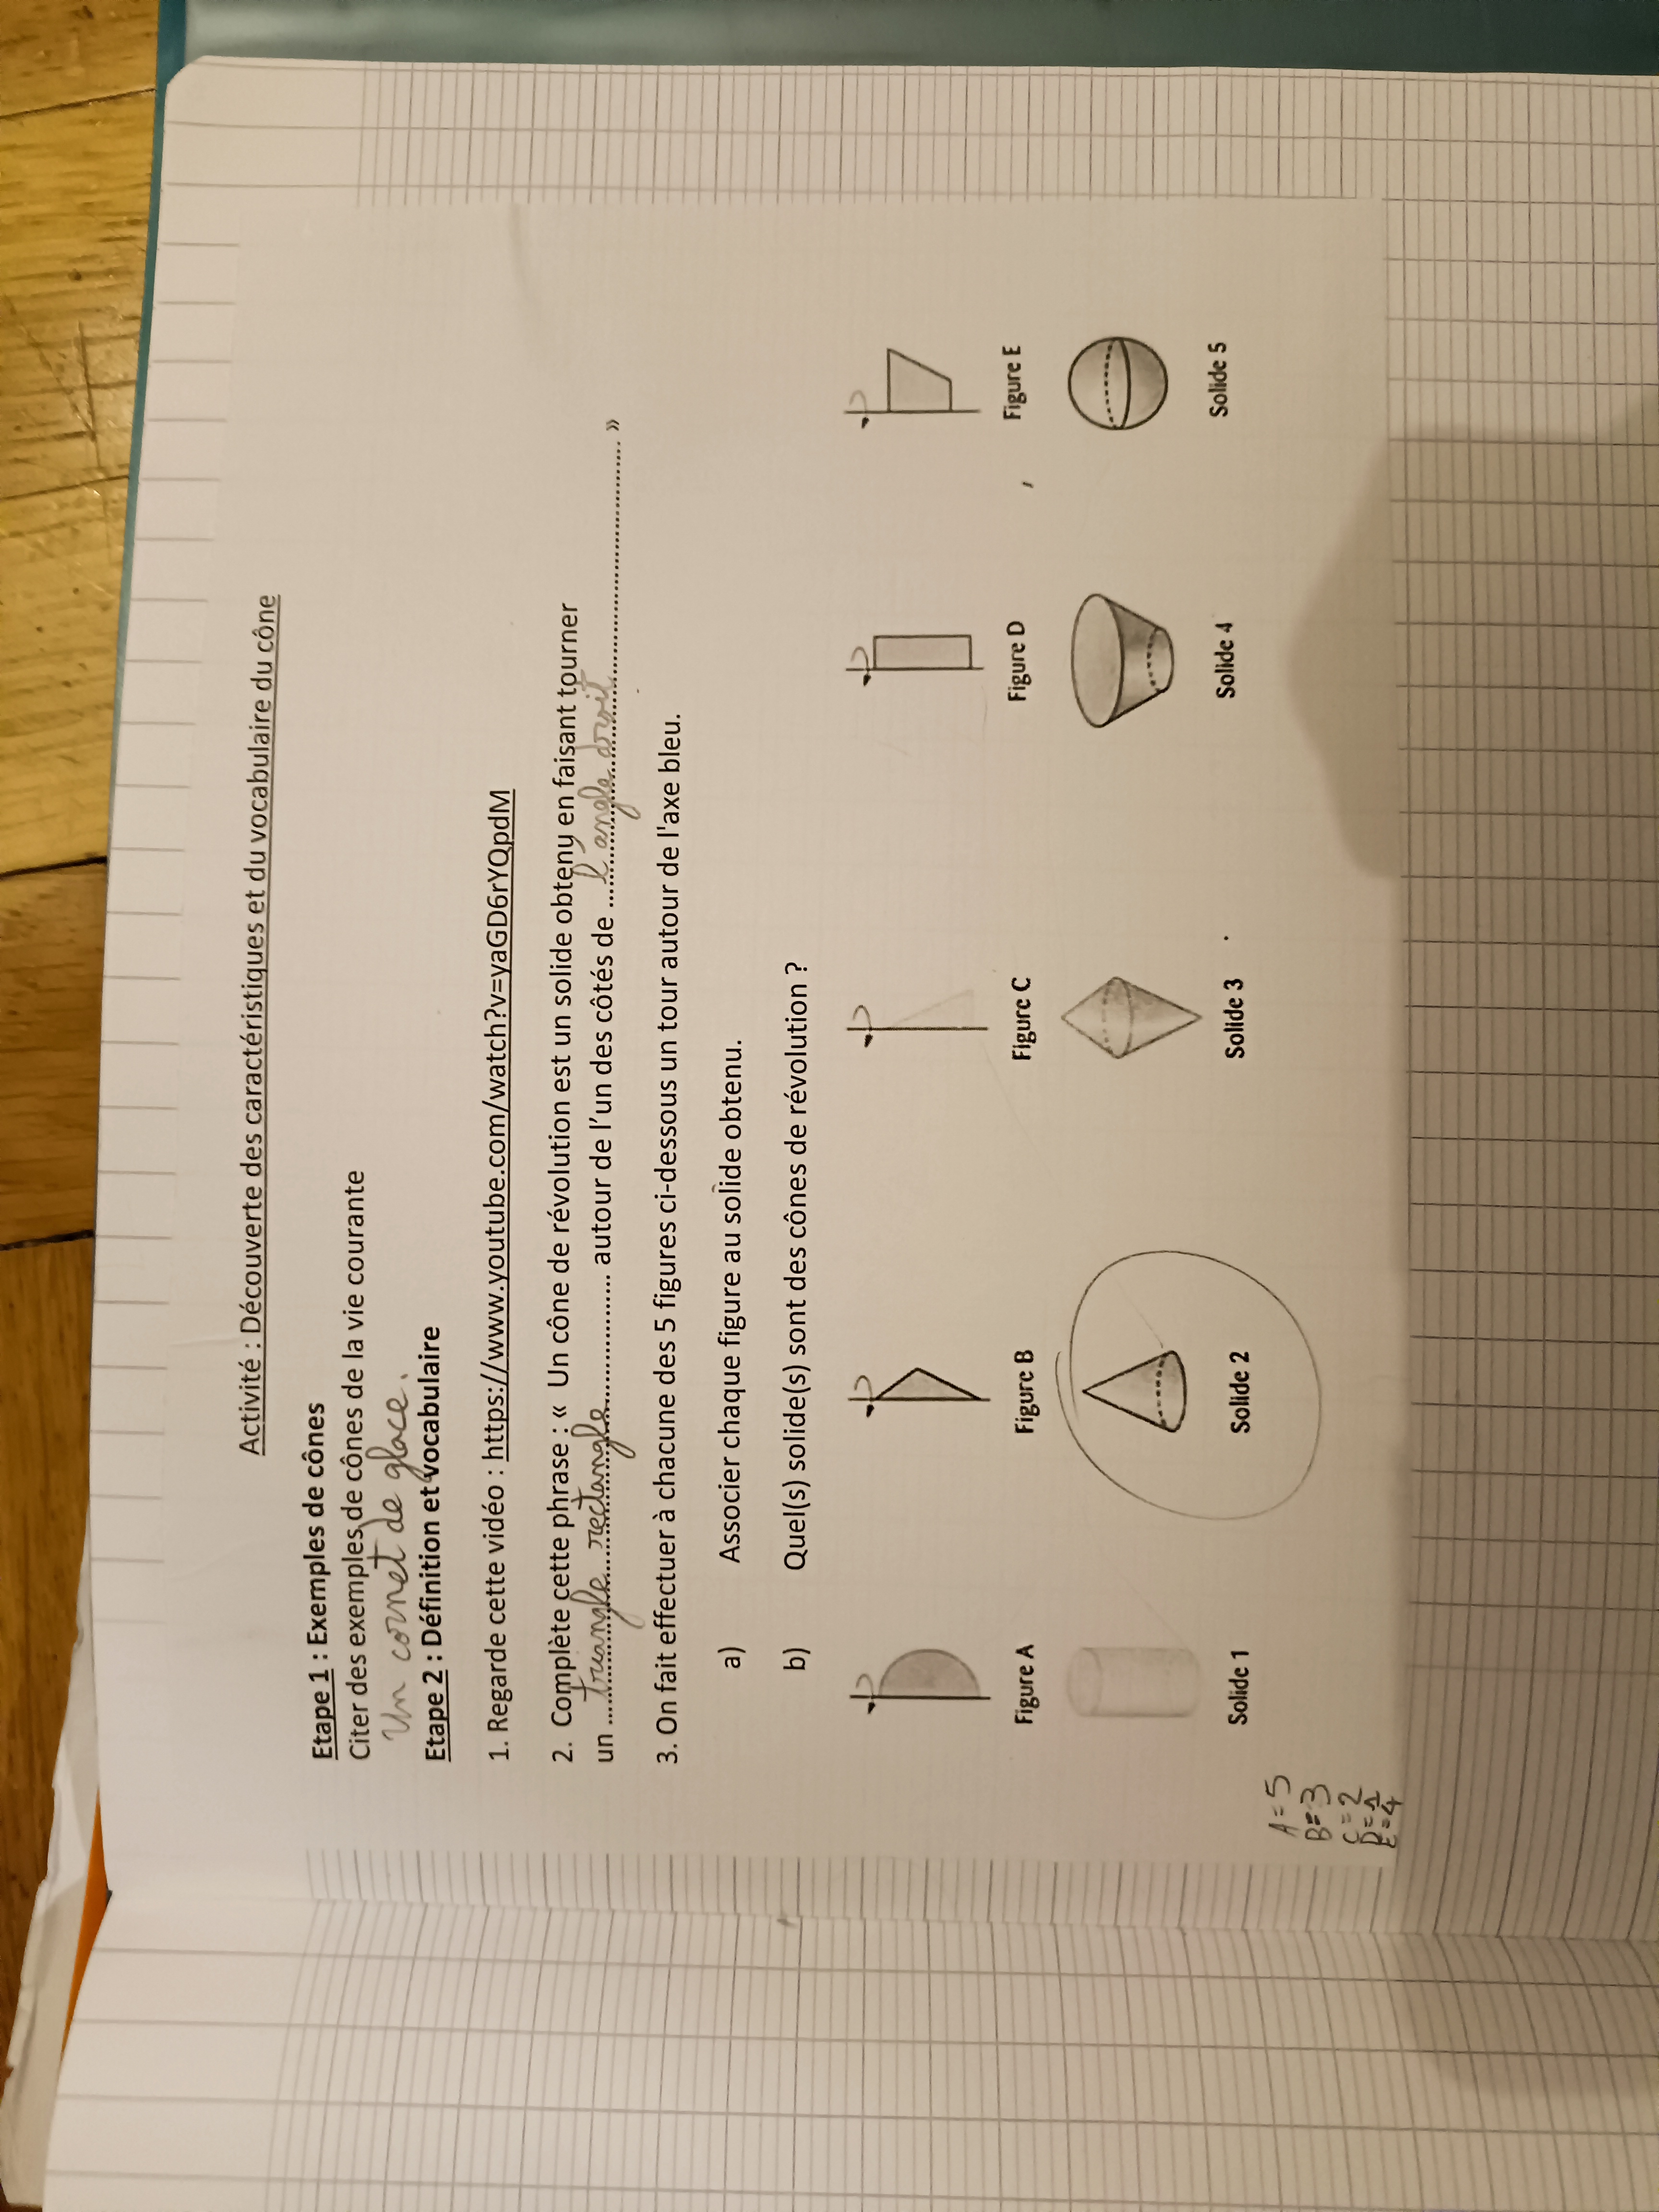 Activité : Découverte des caractéristiques et du vocabulaire du cône
Etape 1 : Exemples de cônes
Citer des exemples de cônes de la vie courante
Un cornet de glace.
Etape 2 : Définition et vocabulaire
1. Regarde cette vidéo : https://www.youtube.com/watch?v=yaGD6rYQpdM
2. Complète cette phrase : « Un cône de révolution est un solide obtenu en faisant tourner
un ...triangle rectangle... autour de l'un des côtés de ...l'angle droit... »
3. On fait effectuer à chacune des 5 figures ci-dessous un tour autour de l'axe bleu.
a) Associer chaque figure au solide obtenu.
b) Quel(s) solide(s) sont des cônes de révolution ?
Figure A Figure B Figure C Figure D Figure E
Solide 1 Solide 2 Solide 3 Solide 4 Solide 5
A = 5
B = 3
C = 2
D = 1
E = 4